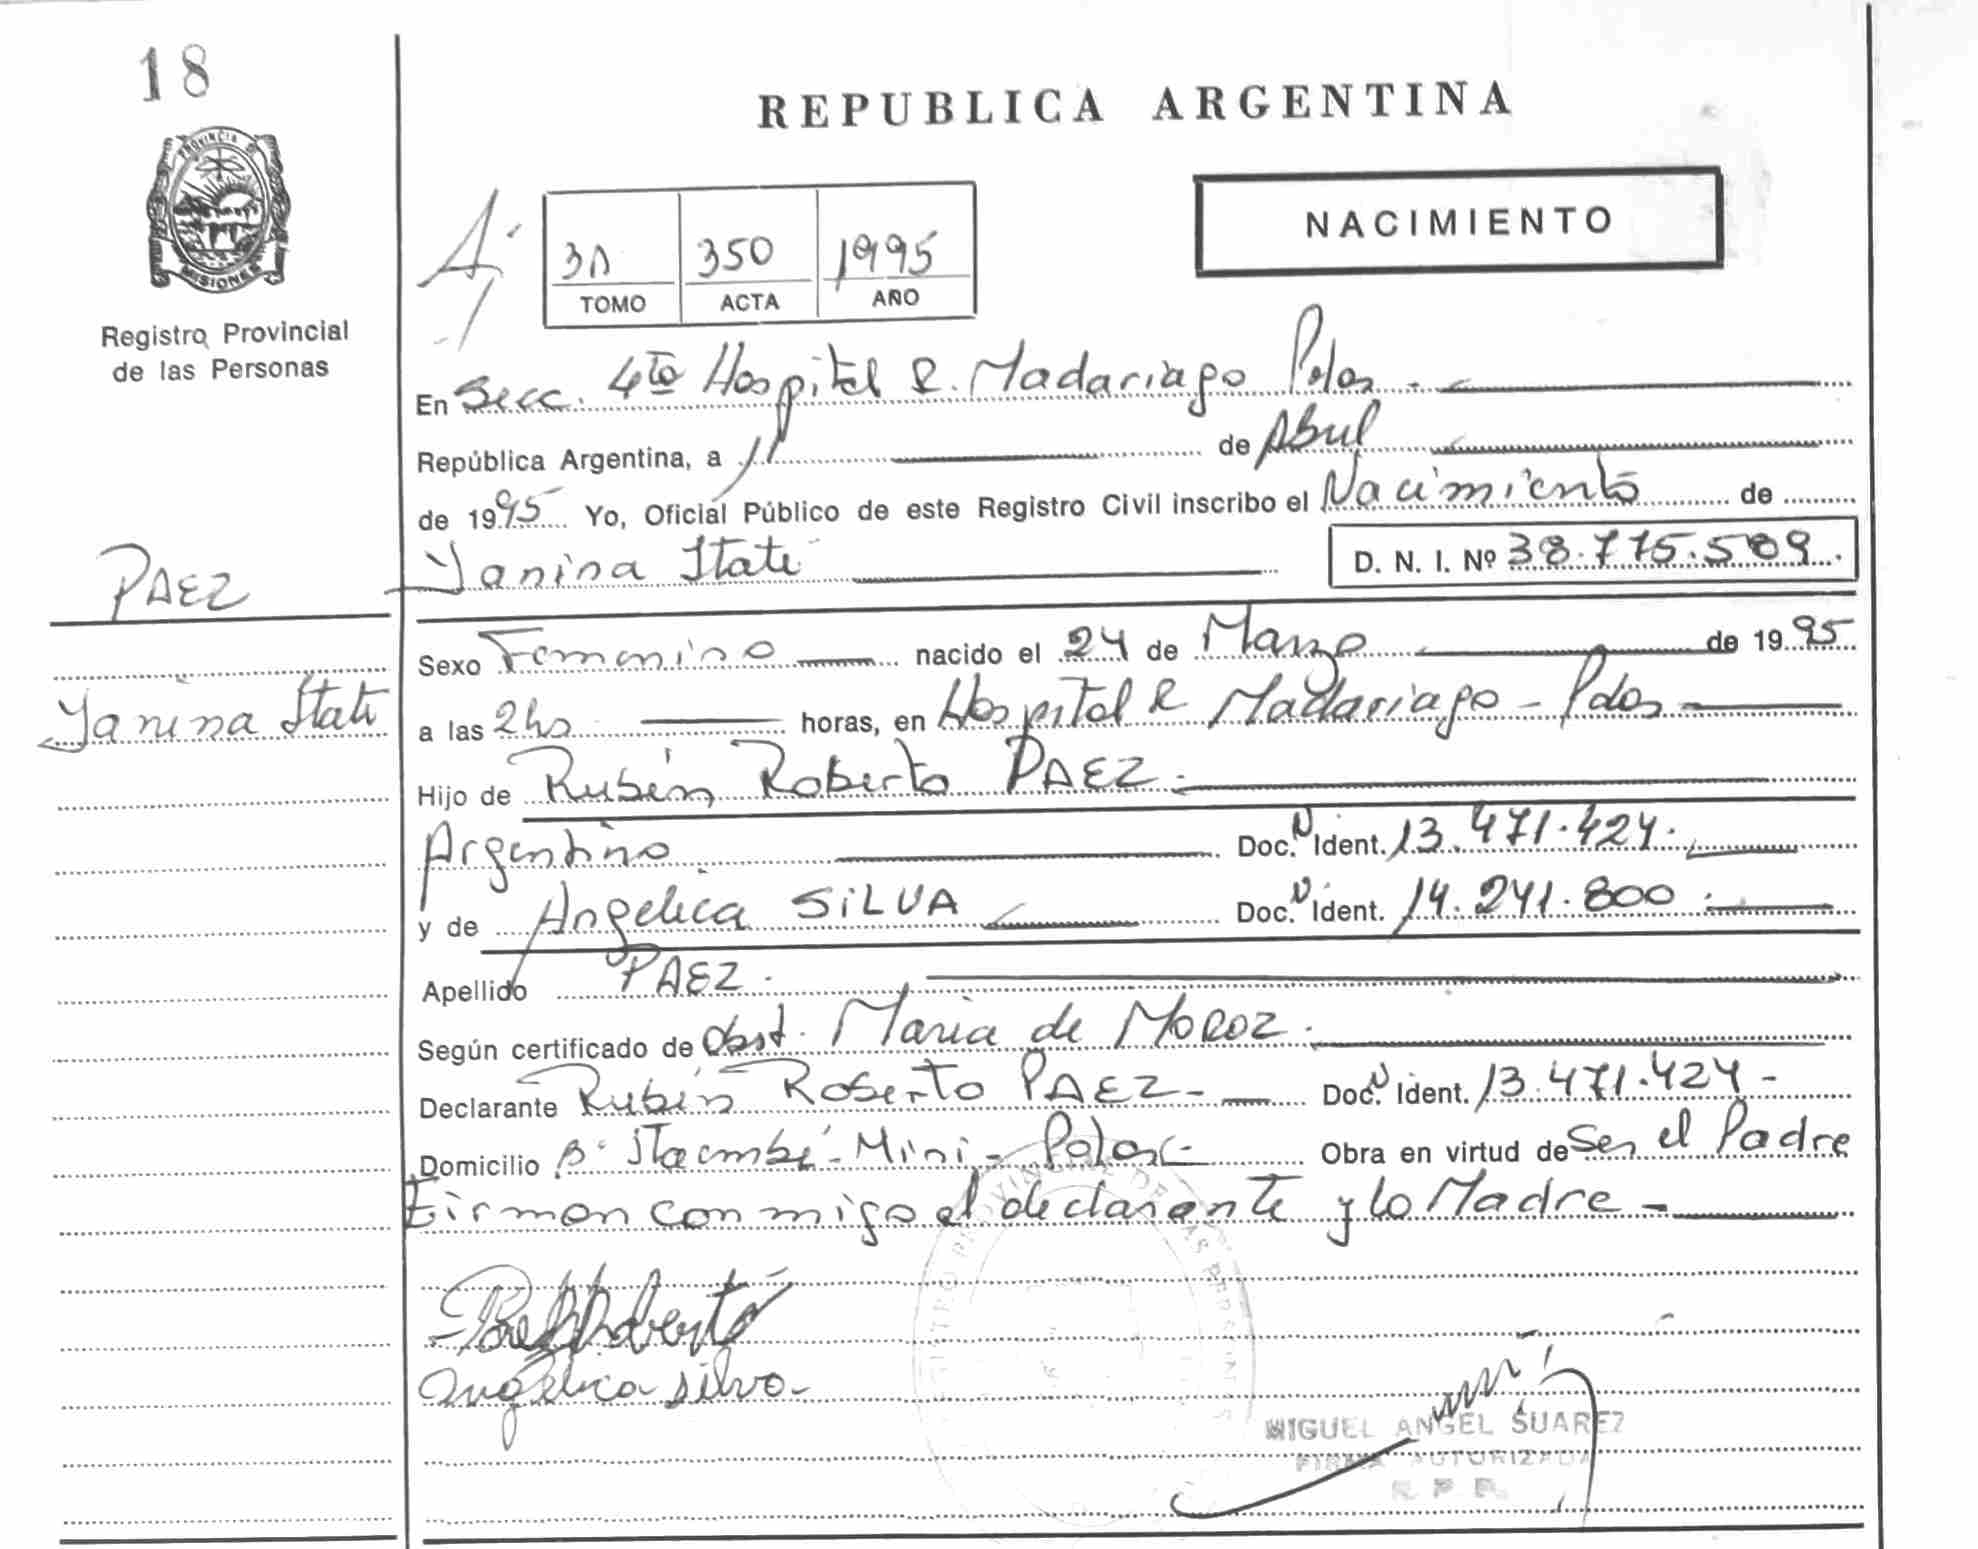 18
REPUBLICA ARGENTINA
PROVINCIA DE
MISIONES
Registro Provincial
de las Personas
NACIMIENTO
350 1995
TOMO ACTA AÑO
En Secc. 4ta Hospital R. Madariaga Pdas.
República Argentina, a 11 de Abril
de 1995 Yo, Oficial Público de este Registro Civil inscribo el Nacimiento de
PAEZ
Yanina Itati D. N. I. Nº 38.775.589.
Sexo Femenino nacido el 24 de Marzo de 1995
Yanina Itati
a las 2hs horas, en Hospital R Madariaga - Pdas
Hijo de Rubén Roberto PAEZ.
Argentino Doc. N Ident. 13.471.424.
y de Angelica SILVA Doc. N Ident. 14.241.800.
Apellido PAEZ.
Según certificado de Obst. Maria de MOROZ.
Declarante Rubén Roberto PAEZ - Doc. N Ident. 13.471.424-
Domicilio Bº Itaembé-Mini - Pdas- Obra en virtud de Ser el Padre
Firman conmigo el declarante y la Madre -
Paez Roberto
Angélica Silva-
MIGUEL ANGEL SUAREZ
FIRMA AUTORIZADA
R. P. P.